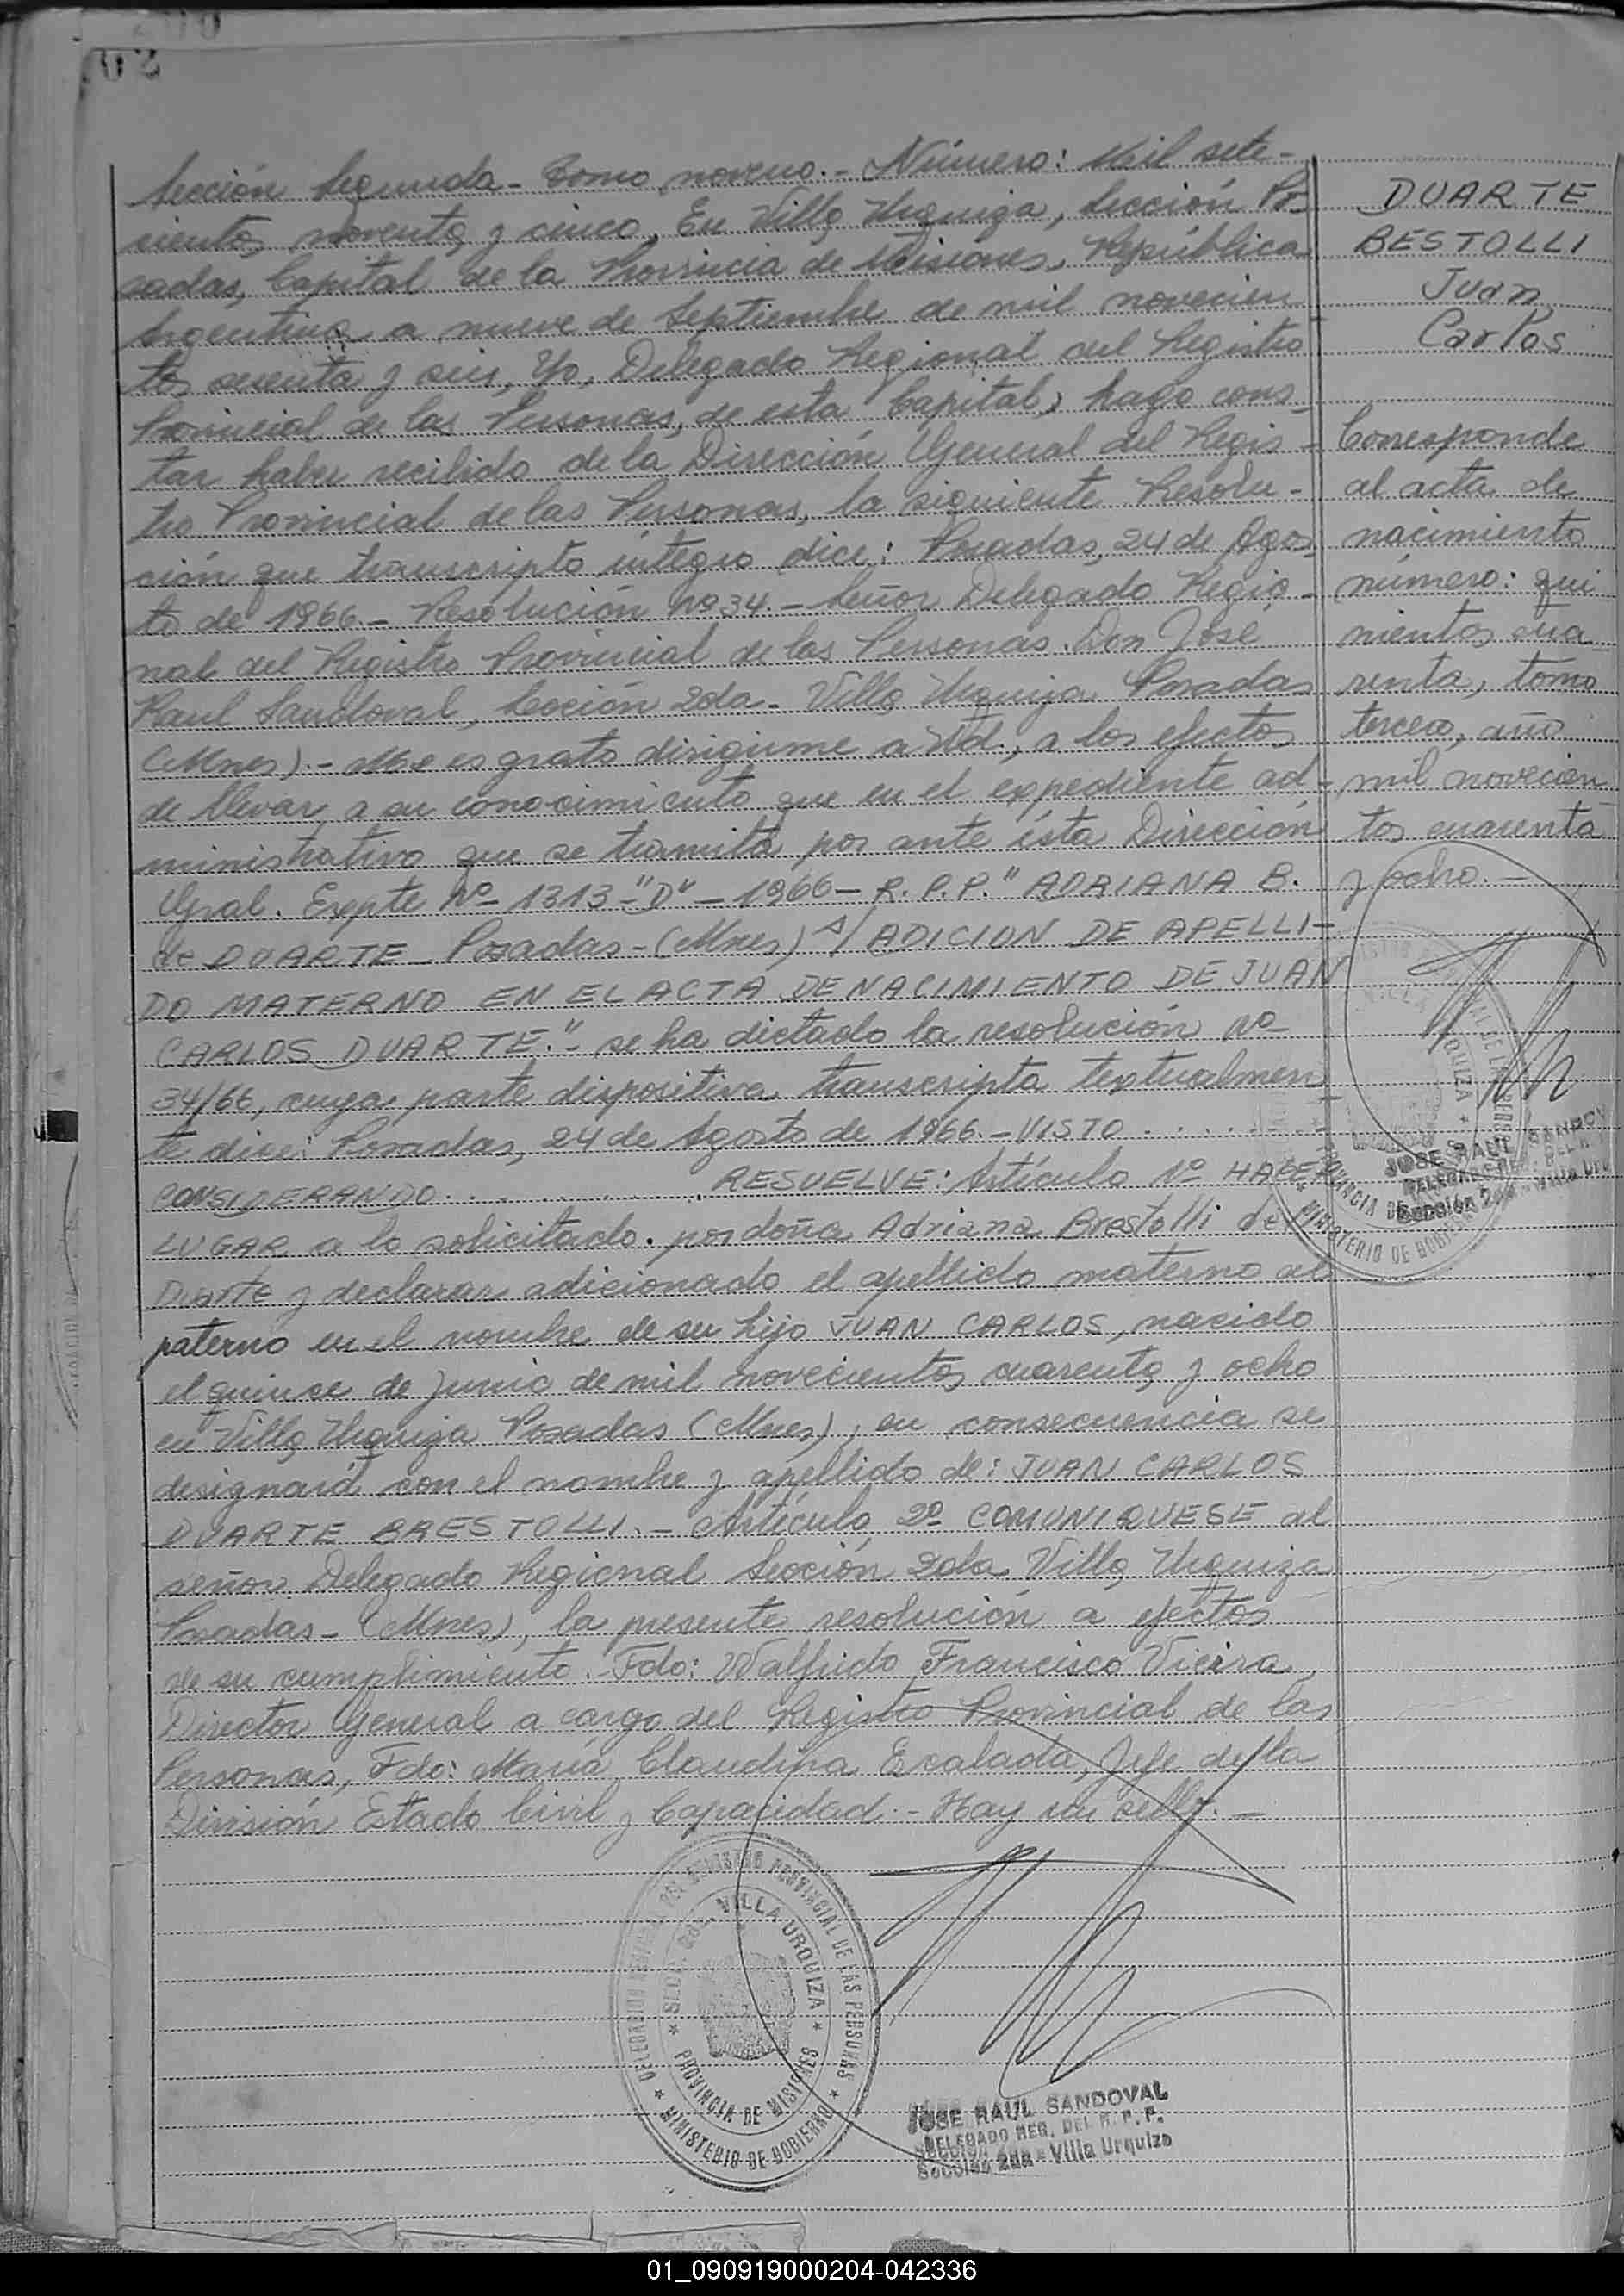 Sección Segunda - Tomo noveno. - Número: Mil sete-
cientos noventa y cinco, En Villa Urquiza, Sección Po-
sadas, Capital de la Provincia de Misiones, República
Argentina a nueve de Septiembre de mil novecien
tos sesenta y seis, Yo, Delegado Regional del Registro
Provincial de las Personas, de esta Capital, hago cons-
tar haber recibido de la Dirección General del Regis-
tro Provincial de las Personas, la siguiente Resolu-
ción que transcripto íntegro dice: Posadas, 24 de Agos
to de 1966. - Resolución Nº 34. - Señor Delegado Regio-
nal del Registro Provincial de las Personas Don José
Raul Sandoval, Sección 2da - Villa Urquiza Posadas
(Mnes). - Me es grato dirigirme a Ud., a los efectos
de llevar a su conocimiento que en el expediente ad-
ministrativo que se tramita por ante ésta Dirección
Gral. Expte Nº 1313 - "D" - 1966 - R. P. P. " ADRIANA B.
de DUARTE - Posadas - (Mnes) s/ ADICION DE APELLI-
DO MATERNO EN EL ACTA DE NACIMIENTO DE JUAN
CARLOS DUARTE." - se ha dictado la resolución Nº
34/66, cuya parte dispositiva transcripta textualmen
te dice: Posadas, 24 de Agosto de 1966. - VISTO . . . . . .
CONSIDERANDO . . . . . . . . . . RESUELVE: Artículo 1º HACER
LUGAR a lo solicitado por doña Adriana Brestolli de
Duarte y declarar adicionado el apellido materno al
paterno en el nombre de su hijo JUAN CARLOS, nacido
el quince de Junio de mil novecientos cuarenta y ocho
en Villa Urquiza Posadas (Mnes), en consecuencia se
designará con el nombre y apellido de: JUAN CARLOS
DUARTE BRESTOLLI. - Artículo 2º COMUNIQUESE al
señor Delegado Regional Sección 2da Villa Urquiza
Posadas - (Mnes), la presente resolución a efectos
de su cumplimiento. - Fdo: Walfrido Francisco Vieira
Director General a cargo del Registro Provincial de las
Personas, Fdo: María Claudina Escalada, Jefe de la
División Estado Civil y Capacidad. - Hay un sello. -
DUARTE
BESTOLLI
Juan
Carlos
Corresponde
al acta de
nacimiento
número: qui
nientos cua
renta, tomo
tercero, año
mil novecien
tos cuarenta
y ocho. -
JOSE RAUL SANDOV
DELEGADO REG. DEL R.
Sección 2da - Villa Urq
DELEGACION REGIONAL DEL REGISTRO PROVINCIAL DE LAS PERSONAS
SECC. 2da. VILLA URQUIZA
PROVINCIA DE MISIONES
MINISTERIO DE GOBIERNO
JOSE RAUL SANDOVAL
DELEGADO REG. DEL R. P. P.
Sección 2da - Villa Urquiza
01_090919000204-042336